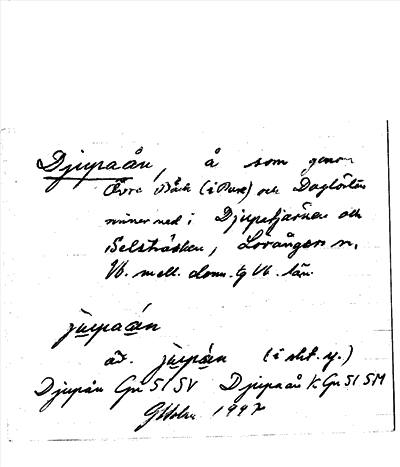 Djupaån, å som genom
Övre Bäck (i Bure) och Daglösten
rinner ned i Djuptjärnen och
Selsträsket, Lövångers sn,
Vb. mell. doms. Vb. län.
jupaán
äv. jupán (i sht. y.)
Djupån Gn 51 SV Djupaån K Gn 51 SM
GHolm 1947